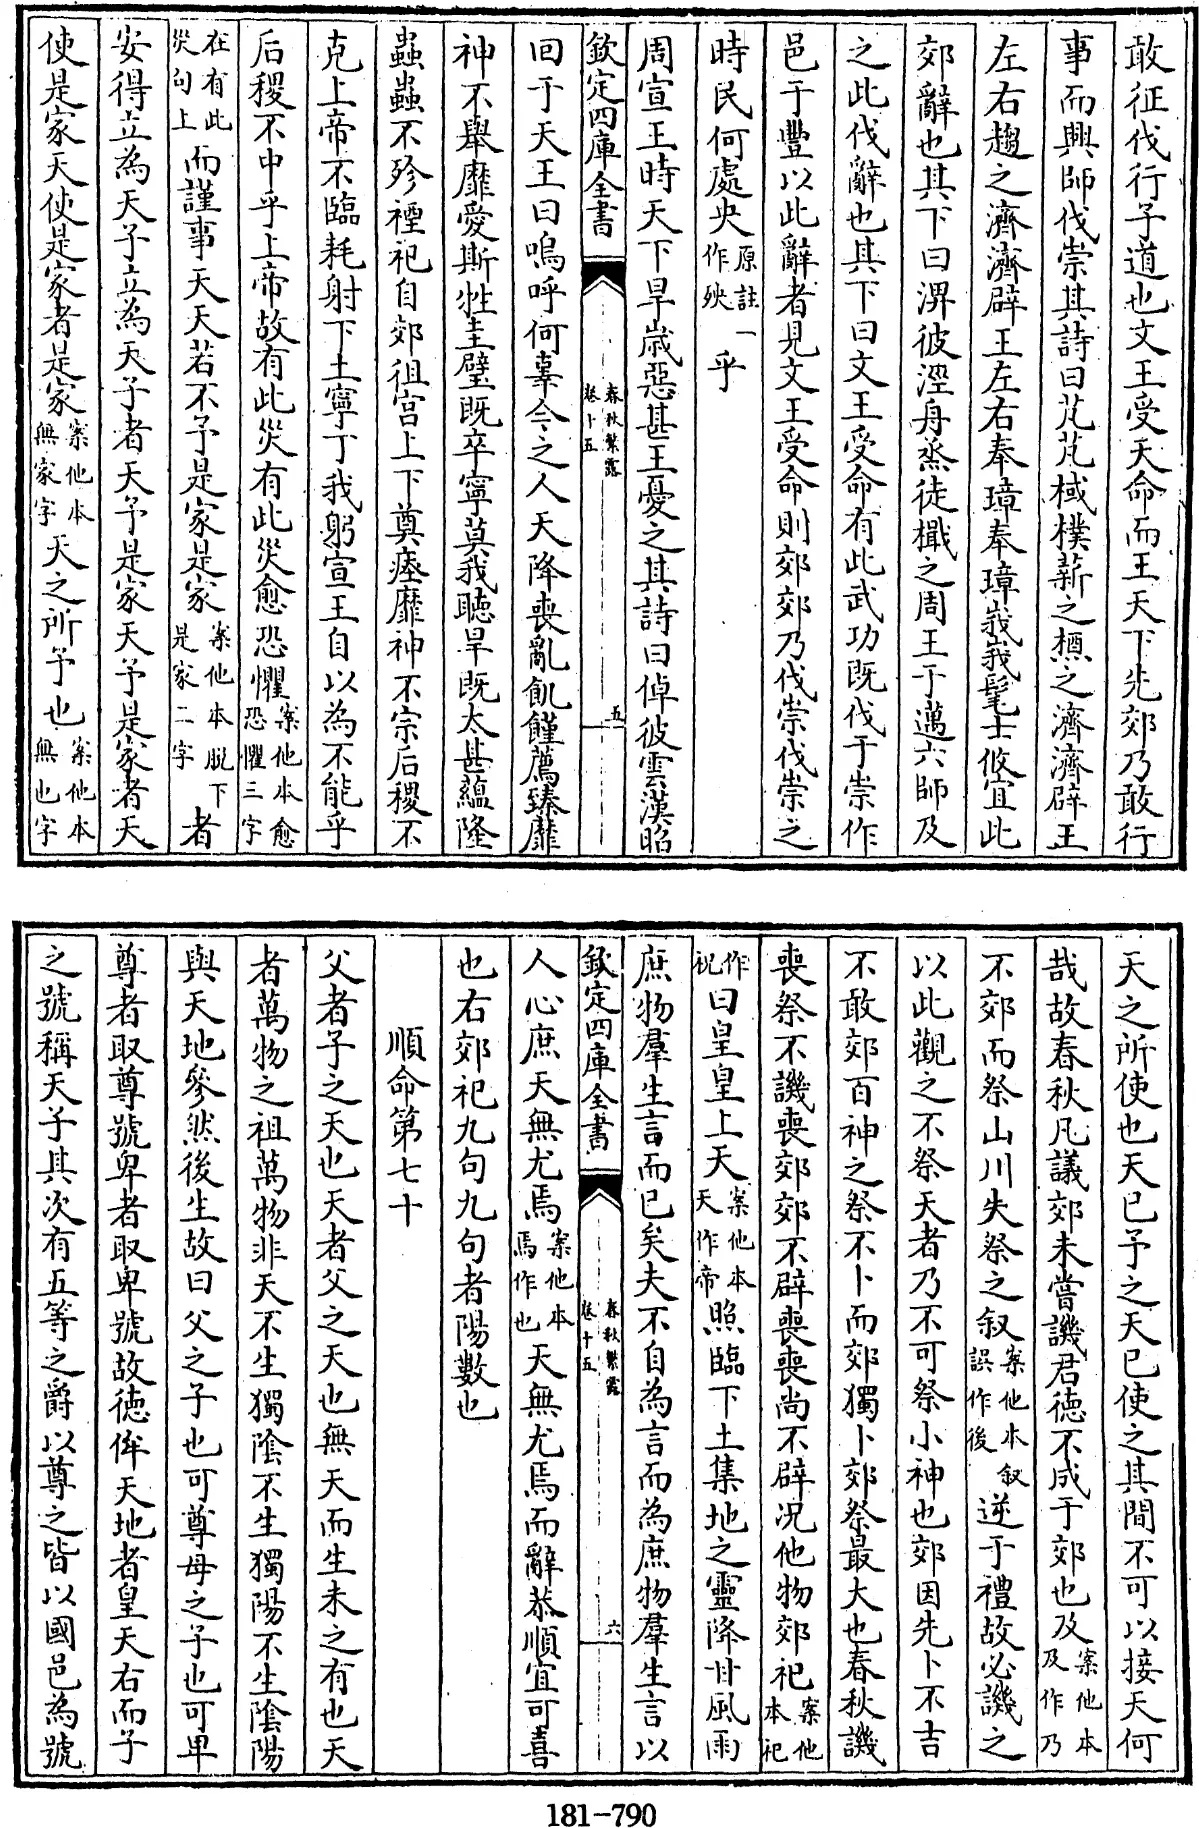 敢征伐行子道也文王受天命而王天下先郊乃敢行
事而興師伐崇其詩曰芃芃棫樸薪之槱之濟濟辟王
左右趨之濟濟辟王左右奉璋奉璋峩峩髦士攸宜此
郊辭也其下曰淠彼涇舟烝徒檝之周王于邁六師及
之此伐辭也其下曰文王受命有此武功既伐于崇作
邑于豐以此辭者見文王受命則郊郊乃伐崇伐崇之
時民何處央原註一作殃乎
周宣王時天下旱歲惡甚王憂之其詩曰倬彼雲漢昭
欽定四庫全書 春秋繁露卷十五 五
回于天王曰嗚呼何辜今之人天降喪亂飢饉薦臻靡
神不舉靡愛斯牲圭璧既卒寧莫我聽旱既太甚蘊隆
蟲蟲不殄禋祀自郊徂宮上下奠瘞靡神不宗后稷不
克上帝不臨耗射下土寧丁我躬宣王自以為不能乎
后稷不中乎上帝故有此災有此災愈恐懼案他本愈恐懼三字
在有此災句上而謹事天天若不予是家是家案他本脱下是家二字者
安得立為天子立為天子者天予是家天予是家者天
使是家天使是家者是家案他本無家字天之所予也案他本無也字
天之所使也天已予之天已使之其間不可以接天何
哉故春秋凡議郊未嘗譏君德不成于郊也及案他本及作乃
不郊而祭山川失祭之叙案他本叙誤作後逆于禮故必譏之
以此觀之不祭天者乃不可祭小神也郊因先卜不吉
不敢郊百神之祭不卜而郊獨卜郊祭最大也春秋譏
喪祭不譏喪郊郊不辟喪喪尚不辟况他物郊祀案他本祀
作祝曰皇皇上天案他本天作帝照臨下土集地之靈降甘風雨
庶物羣生言而已矣夫不自為言而為庶物羣生言以
欽定四庫全書 春秋繁露卷十五 六
人心庶天無尤焉案他本焉作也天無尤焉而辭恭順宜可喜
也右郊祀九句九句者陽數也
順命第七十
父者子之天也天者父之天也無天而生未之有也天
者萬物之祖萬物非天不生獨陰不生獨陽不生陰陽
與天地參然後生故曰父之子也可尊母之子也可卑
尊者取尊號卑者取卑號故德侔天地者皇天右而子
之號稱天子其次有五等之爵以尊之皆以國邑為號
181-790